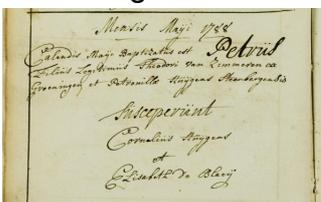 Mensis Maÿ 1788
Calendis Maÿ Baptizatus est Petrus
filius Legitimus Theodori van Zemmeren ex
Groeningen et Petronilla Huÿgens
Susceperunt
Cornelius Huÿgens
et
Elisabeth De Blaeÿ